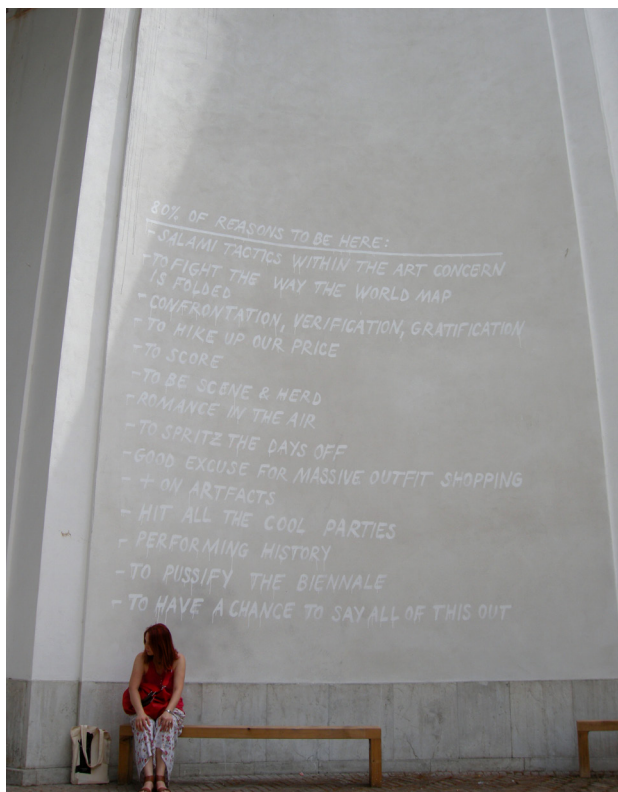 80% OF REASONS TO BE HERE:
- SALAMI TACTICS WITHIN THE ART CONCERN
- TO FIGHT THE WAY THE WORLD MAP
IS FOLDED
- CONFRONTATION, VERIFICATION, GRATIFICATION
- TO HIKE UP OUR PRICE
- TO SCORE
- TO BE SCENE & HERD
- ROMANCE IN THE AIR
- TO SPRITZ THE DAYS OFF
- GOOD EXCUSE FOR MASSIVE OUTFIT SHOPPING
- + ON ARTFACTS
- HIT ALL THE COOL PARTIES
- PERFORMING HISTORY
- TO PUSSIFY THE BIENNALE
- TO HAVE A CHANCE TO SAY ALL OF THIS OUT